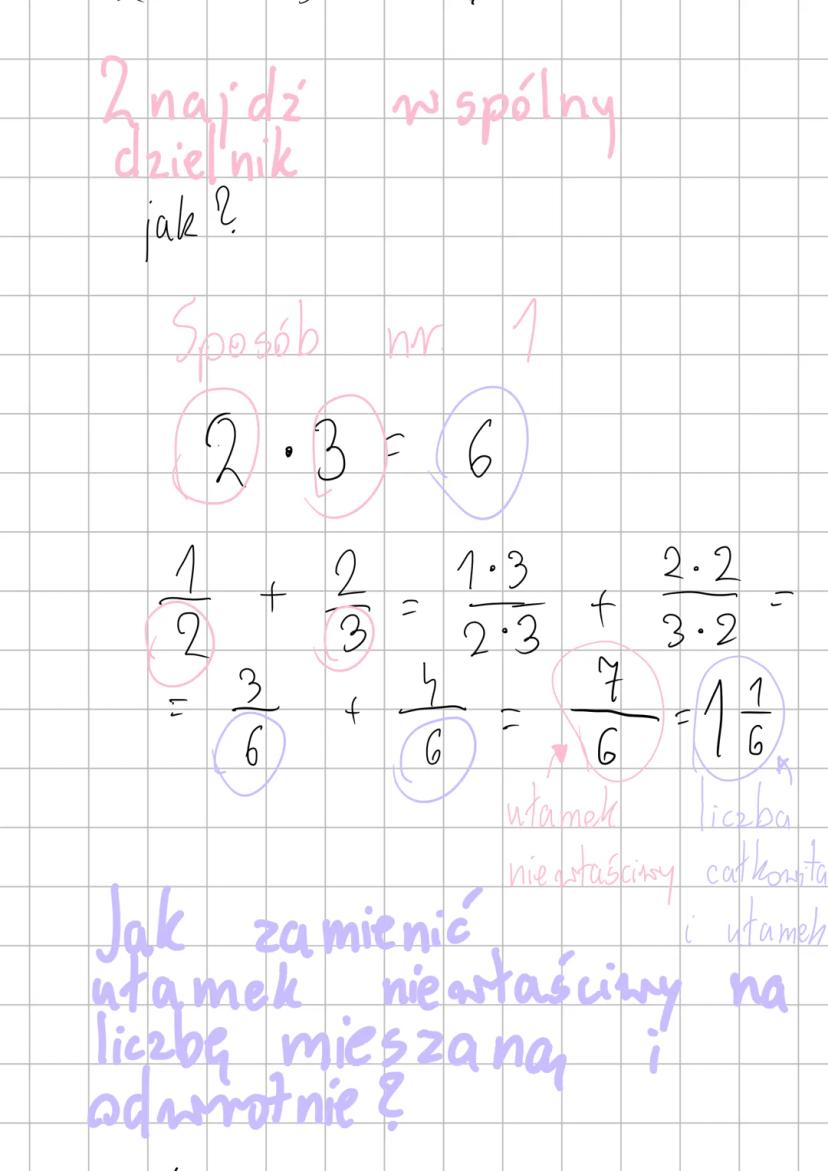 Znajdź wspólny
dzielnik
jak?
Sposób nr. 1
2 · 3 = 6
1/2 + 2/3 = 1·3/2·3 + 2·2/3·2 =
= 3/6 + 4/6 = 7/6 = 1 1/6
ułamek liczba
niewłaściwy całkowita
i ułamek
Jak zamienić
ułamek niewłaściwy na
liczbę mieszaną i
odwrotnie?